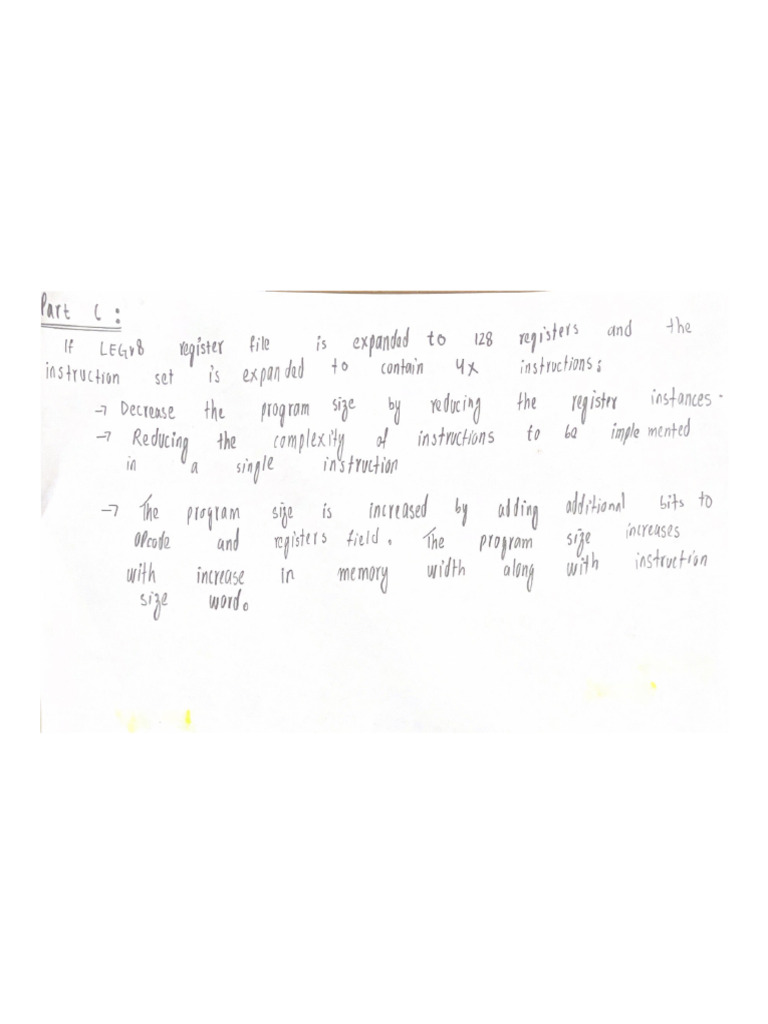 Part C :
If LEGv8 register file is expanded to 128 registers and the
instruction set is expanded to contain 4x instructions:
→ Decrease the program size by reducing the register instances.
→ Reducing the complexity of instructions to be implemented
in a single instruction
→ The program size is increased by adding additional bits to
opcode and registers field. The program size increases
with increase in memory width along with instruction
size word.